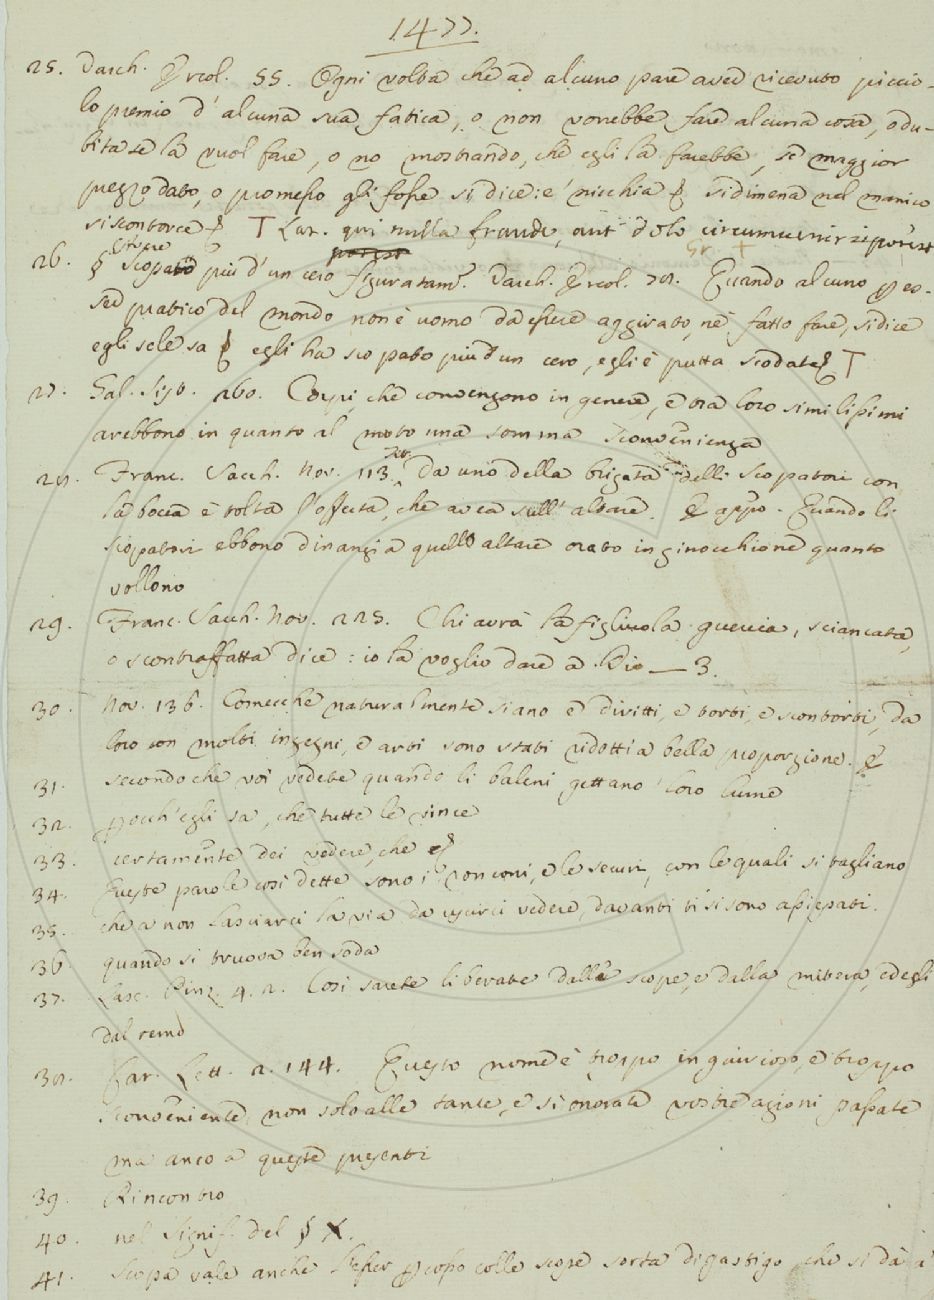 1477.
25. Varch. Ercol. 55. Ogni volta che ad alcuno pare aver ricevuto piccio-
lo premio d'alcuna sua fatica, o non vorrebbe fare alcuna cosa, o du-
bita se la vuol fare, o no mostrando, che egli la farebbe, se maggior
prezzo dato, o promesso gli fosse si dice: e' nicchia § si dimena nel manico
si scontorce § T Lat. qui nulla fraude, aut dolo circumveniri
26. § Scopato più d'un cero figuratam. Varch. Ercol. 78. Quando alcuno per es-
ser pratico del mondo non è uomo da essere aggirato, nè fatto fare, si dice
egli se le sa § egli ha scopato più d'un cero, egli è putta scodata § T
27. Gal. Sist. 260. Corpi, che convengono in genere, e ora loro similissimi
arebbono in quanto al moto una somma sconvenienza
28. Franc. Sacch. Nov. 113. Da uno della brigata delli scopatori con
la bocca è tolta l'offerta, che avea sull' altare. E appo. Quando li
scopatori ebbono dinanzi a quello altare orato in ginocchione quanto
vollono
29. Franc. Sacch. Nov. 223. Chi avrà la figliuola guercia, sciancata,
o scontraffatta dice: io la voglio dare a Dio — 3.
30. Nov. 136. Comecchè naturalmente siano e diritti, e torti, e scontorti, da
loro con molti ingegni, e arti sono stati ridotti a bella proporzione. §
31. secondo che voi vedete quando li baleni gettano loro lume
32. poch'egli sa, che tutte le vince
33. certamente dei vedere, che §
34. Queste parole così dette sono i ronconi, e le securi, con le quali si tagliano
35. che a non lasciarci la via da uscirci vedere, davanti ti si sono assiepati.
36. quando si truova ben soda
37. Lasc. Pinz. 4. 2. Così sarete liberate dalle scope, e dalla mitera, ed egli
dal remo
38. Car. Lett. 2. 144. Questo nome è troppo ingiurioso, e troppo
sconveniente, non solo alle tante, e sì onorate vostre azioni passate
ma anco a queste presenti
39. Rincontro
40. nel signif. del § X.
41. Scopa vale anche l'esser scopo colle scope sorta di gastigo, che si dà a